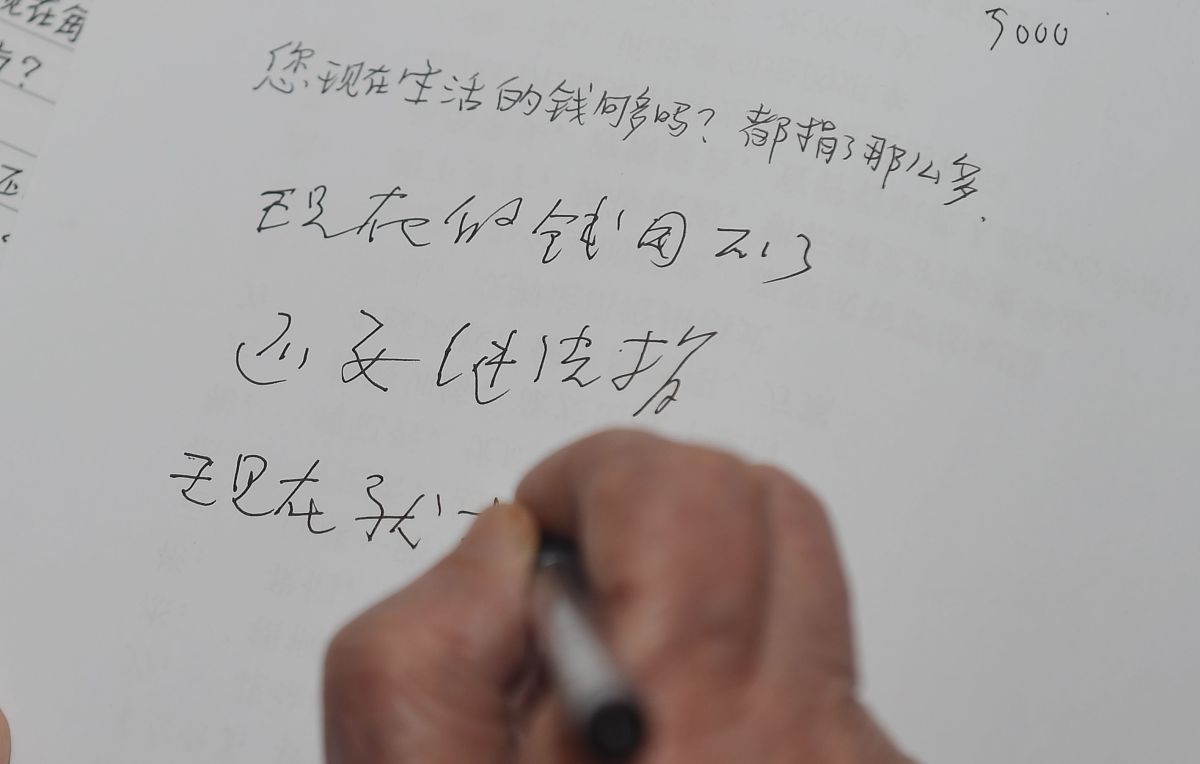 5000
您现在生活的钱够多吗？都捐了那么多.
现在的钱用不了
还要继续捐
现在我
现在角
？